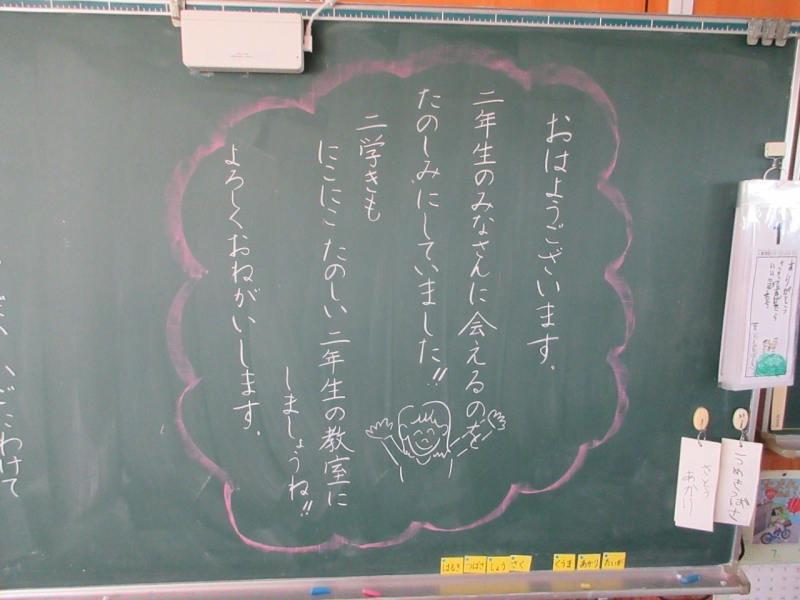 おはようございます。
二年生のみなさんに会えるのを
たのしみにしていました!!
二学きも
にこにこ たのしい 二年生の教室に
しましょうね!!
よろしくおねがいします。
さとう
あかり
はるき
つばさ
しょう
さく
くうま
あかり
たいが